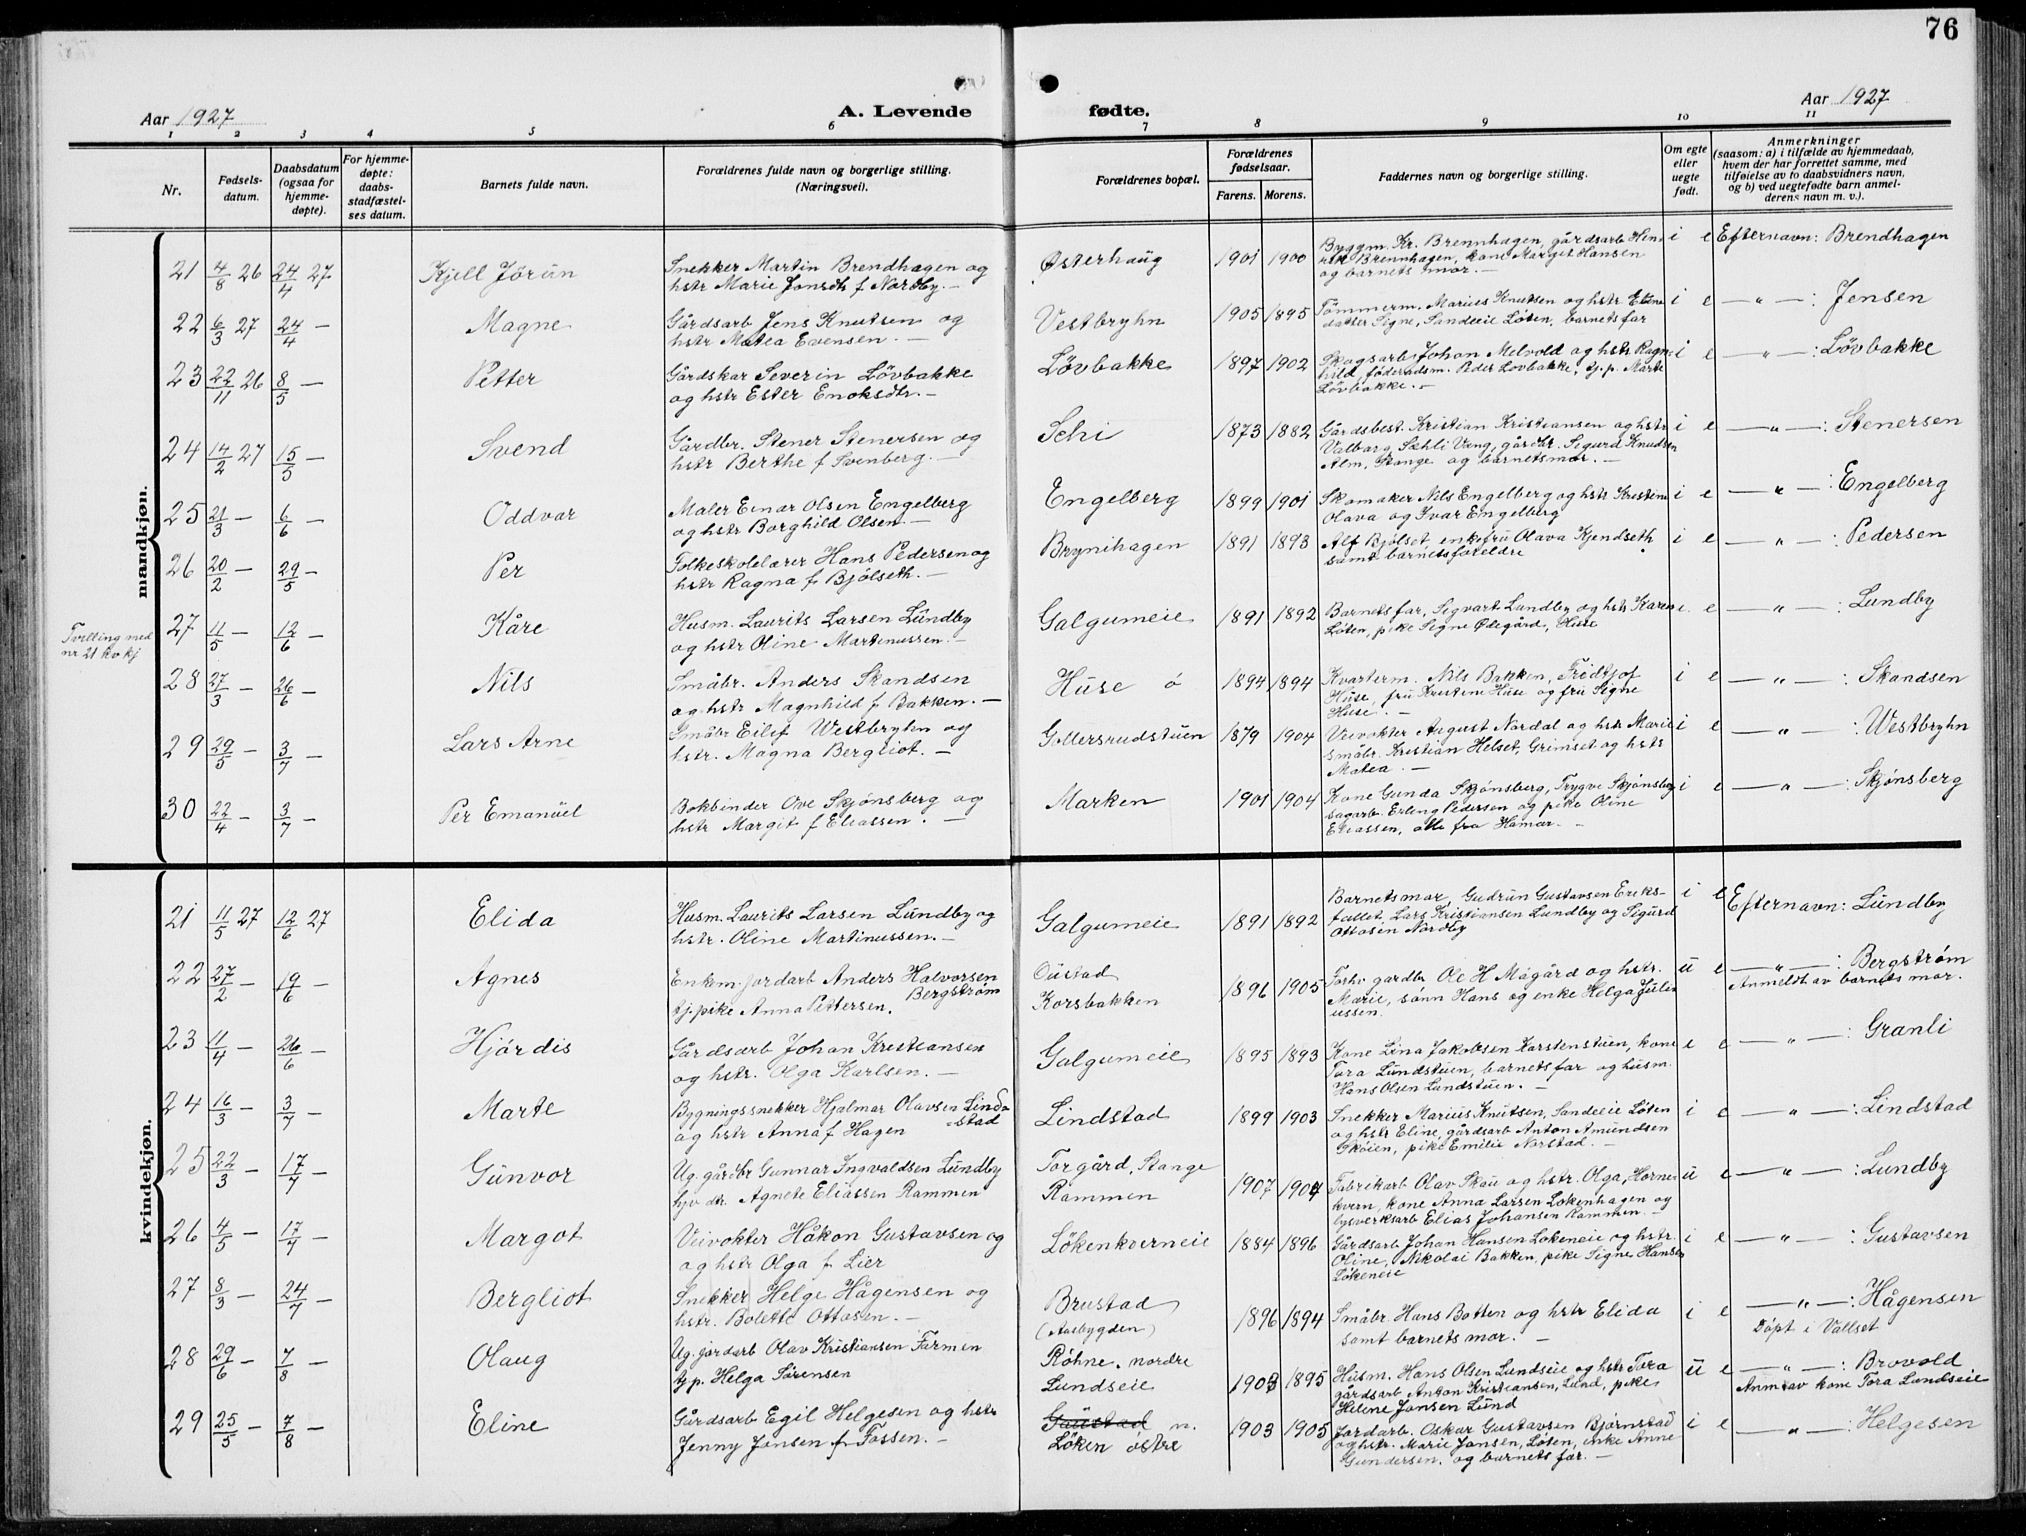 76
Aar 1927
A. Levende
fødte.
Aar 1927
1 2 3 4 5 6 7 8 9 10 11
Nr.
Fødsels-
datum.
Daabsdatum
(ogsaa for
hjemme-
døpte).
For hjemme-
døpte:
daabs-
stadfæstel-
ses datum.
Barnets fulde navn.
Forældrenes fulde navn og borgerlige stilling.
(Næringsvei).
Forældrenes bopæl.
Forældrenes
fødselsaar.
Farens. Morens.
Faddernes navn og borgerlige stilling.
Om egte
eller
uegte
født.
Anmerkninger
(saasom: a) i tilfælde av hjemmedaab,
hvem der har forrettet samme, med
tilføielse av to daabsvidners navn,
og b) ved uegtefødte barn anmel-
derens navn m. v.).
mandkjøn.
21 4/8 26 24/4 27 Kjell Jörun
Snekker Martin Brendhagen og
hstr Marie Jonsdtr f Nordby. —
Østerhaug 1901 1900
Byggm. Kr. Brennhagen, gårdsarb Hen-
rik Brennhagen, kone Margit Hansen
og barnets mor. —
i e Efternavn: Brendhagen
22 6/3 27 24/4 — Magne
Gårdsarb Jens Knutsen og
hstr Matea Evensen. —
Vestbryhn 1905 1895
Tömmerm. Marius Knutsen og hstr Eline
datter Signe, Sandeeie Løten, barnets far
i e — " — : Jensen
23 22/11 26 8/5 — Petter
Gårdskar Severin Lövbakke
og hstr Ester Enoksdtr. —
Løvbakke 1897 1902
Skogsarb. Johan Melvold og hstr Ragn-
hild, föderådsm. Peder Lovbakke, tj.p. Marte
Lövbakke. —
i e — " — : Løvbakke
24 14/2 27 15/5 — Svend
Gårdbr. Stener Stenersen og
hstr Berthe f Svenberg. —
Sehi 1873 1882
Gårdsbest. Kristian Kristiansen og hstr
Valborg, Sæhli Vang, gårdbr. Sigurd Knudsen
Alm, Stange og barnets mor. —
i e — " — : Stenersen
25 21/3 — 6/6 — Oddvar
Maler Einar Olsen Engelberg
og hstr Borghild Olsen. —
Engelberg 1899 1901
Skomaker Nils Engelberg og hstr Kristine
Olava og Ivar Engelberg
i e — " — : Engelberg
26 20/2 — 29/5 — Per
Folkeskolelærer Hans Pedersen og
hstr Ragna f Bjölseth. —
Brynihagen 1891 1893
Alf Bjölset, enkefru Olava Kjendseth
samt barnets foreldre
i e — " — : Pedersen
Tvilling med
nr 21 kv kj
27 11/5 — 12/6 — Kåre
Husm. Laurits Larsen Lundby
og hstr Oline Martinussen. —
Galgumeie 1891 1892
Barnets far, Sigvart Lundby og hstr Karen
Løten, pike Signe Ødegård, Huse
i e — " — : Lundby
28 27/3 — 26/6 — Nils
Småbr. Anders Skandsen
og hstr Magnhild f Bakken. —
Huse ö 1894 1894
Kvarterm. Nils Bakken, Fridtjof
Huse, fru Kristine Huse og fru Signe
Huse. —
i e — " — : Skandsen
29 29/5 — 3/7 — Lars Arne
Småbr Eilif Westbryhn og
hstr. Magna Bergliot. —
Gillersrudstuen 1879 1904
Veivokter August Nordal og hstr Marie
småbr. Kristian Helset, Grimset og hstr
Matea. —
i e — " — : Westbryhn
30 22/4 — 3/7 — Per Emanuel
Bokbinder Ove Skjönsberg og
hstr Margit f Eliassen. —
Marken 1901 1904
Kone Gunda Skjönsberg, Trygve Skjönsby
sagarb. Erling Pedersen og pike Oline
Eliassen, alle fra Hamar. —
i e — " — : Skjønsberg
kvindekjøn.
21 11/5 27 12/6 27 Elida
Husm. Laurits Larsen Lundby og
hstr. Oline Martinussen. —
Galgumeie 1891 1892
Barnets mor, Gudrun Gustavsen Eriks-
fallet, Lars Kristiansen Lundby og Sigurd
Ottosen Nordby
i e Efternavn: Lundby
22 27/2 — 19/6 — Agnes
Enkem. jordarb Anders Halvorsen
Bergström
tj.pike Anna Pettersen.
Oustad
Korsbakken 1896 1905
Forhv gardbr, Ole H Mågård og hstr.
Marie, sönn Hans og enke Helga Juli-
ussen.
u e — " — : Bergstrøm
Anmeldt av barnets mor.
23 11/4 — 26/6 — Hjördis
Gårdsarb Johan Kristiansen
og hstr. Olga Karlsen. —
Galgumeie 1895 1893
Kone Lina Jakobsen Karstenstuen, kone
Tora Lundstuen, barnets far og husm.
Hans Olsen Lundstuen. —
e e — " — : Granli
24 16/3 — 3/7 — Marte
Bygningssnekker Hjalmar Olavsen Lind-
stad
og hstr Anna f Hagen
Lindstad 1899 1903
Snekker Marius Knutsen, Sandeeie Løten
og hstr Eline, gårdsarb Anton Amundsen
Sköien, pike Emilie Norstad. —
i e — " — : Lindstad
25 22/3 — 17/7 — Gunvor
Ug. gårdbr Gunnar Ingvaldsen Lundby
tyv dtr. Agnete Eliassen Rammen
Torgård, Stange
Rammen 1907 1904
Fabrikarb Olav Skau og hstr. Olga, Horne-
kvern, kone Anna Larsen Lokenhagen og
lysverksarb Elias Johansen Rammen. —
u e — " — : Lundby
26 4/5 — 17/7 — Margot
Veivokter Håkon Gustavsen og
og hstr Olga f Lier
Løkenkverneie 1884 1896
Gårdsarb Johan Hansen Lokeneie og hstr.
Oline, Nikolai Bakken, pike Signe Hansen
Løkeneie
i e — " — : Gustavsen
27 8/3 — 24/7 — Bergliot
Snekker Helge Hågensen og
hstr. Bolette Ottosen. —
Brustad
(Aasbygden) 1896 1894
Småbr. Hans Botten og hstr Elida
samt barnets mor. —
i e — " — : Hågensen
Döpt i Vallset
28 29/6 — 7/8 — Olaug
Ug. jordarb Olav Kristiansen Farmen
tj p. Helga Sörensen
Röhne, nordre
Lundseie 1903 1895
Husm. Hans Olsen Lundseie og hstr Tora
gårdsarb Anton Kristiansen, Lund, pike
Helene Jonsen Lund
u e — " — : Brovold
Anm. av kone Tora Lundseie
29 25/5 — 7/8 — Eline
Gårdsarb Egil Helgesen og hstr
Jenny Jonsen f Fossen. —
Gaustad n.
Löken östre 1903 1905
Jordarb. Oskar Gustavsen Bjørnstad
og hstr. Marie Jonsen, Løten, enke Anne
Gundersen, og barnets far. —
i e — " — : Helgesen